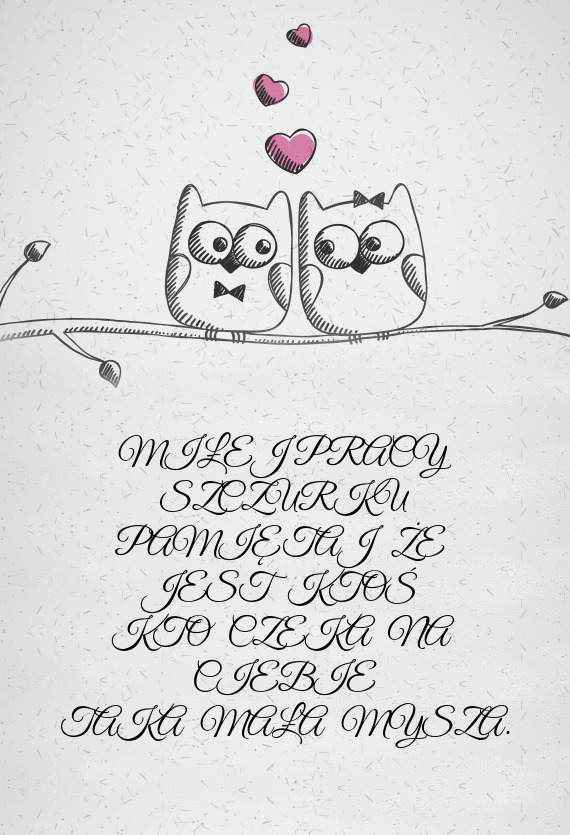 MIŁEJ PRACY
SZCZURKU
PAMIĘTAJ ŻE
JEST KTOŚ
KTO CZEKA NA
CIEBIE
TAKA MAŁA MYSZA.